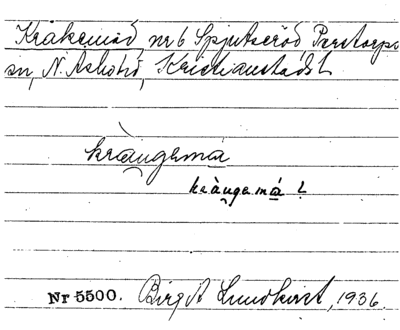 Kråkemåd, nr 6 Spjutseröd, Perstorps
sn, N. Åsbohd, Kristianstadsl
kràu̯gemá
kràu̯ge má ?
Nr 5500. Birgit Lundkvist, 1936.